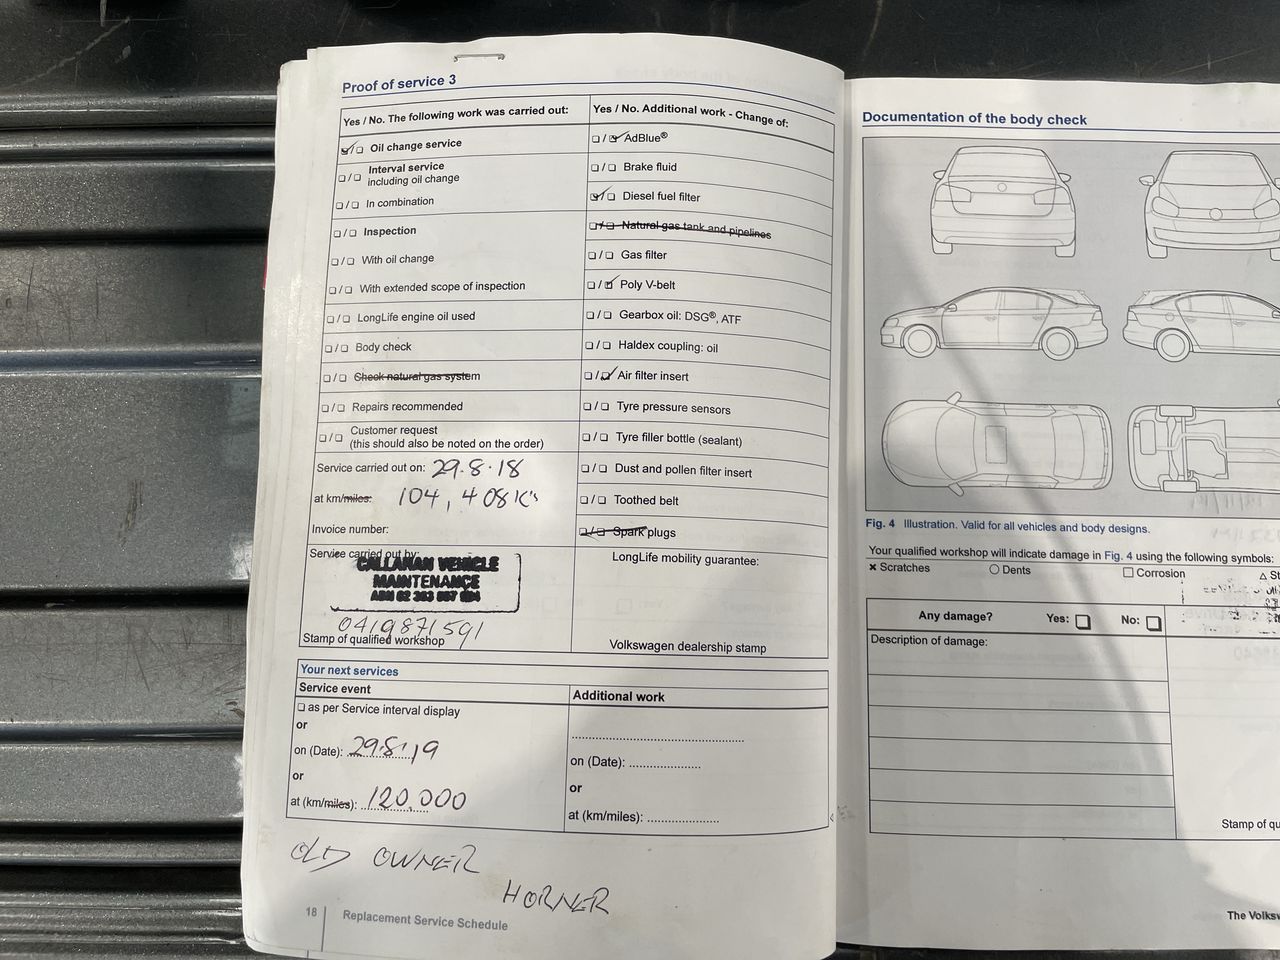 Proof of service 3
Yes / No. The following work was carried out:
Oil change service
Interval service
including oil change
In combination
Inspection
With oil change
With extended scope of inspection
LongLife engine oil used
Body check
Check natural gas system
Repairs recommended
Customer request
(this should also be noted on the order)
Service carried out on: 29.8.18
at km/miles: 104,408 K's
Invoice number:
Service carried out by:
CALLAHAN VEHICLE
MAINTENANCE
0419871591
Stamp of qualified workshop
Yes / No. Additional work - Change of:
AdBlue®
Brake fluid
Diesel fuel filter
Natural gas tank and pipelines
Gas filter
Poly V-belt
Gearbox oil: DSG®, ATF
Haldex coupling: oil
Air filter insert
Tyre pressure sensors
Tyre filler bottle (sealant)
Dust and pollen filter insert
Toothed belt
Spark plugs
LongLife mobility guarantee:
Volkswagen dealership stamp
Your next services
Service event
as per Service interval display
or
on (Date): 29.8.19
or
at (km/miles): 120,000
Additional work
on (Date):
or
at (km/miles):
OLD OWNER
HORNER
18 Replacement Service Schedule
Documentation of the body check
Fig. 4 Illustration. Valid for all vehicles and body designs.
Your qualified workshop will indicate damage in Fig. 4 using the following symbols:
× Scratches
○ Dents
□ Corrosion
Any damage? Yes: No:
Description of damage:
Stamp of
The